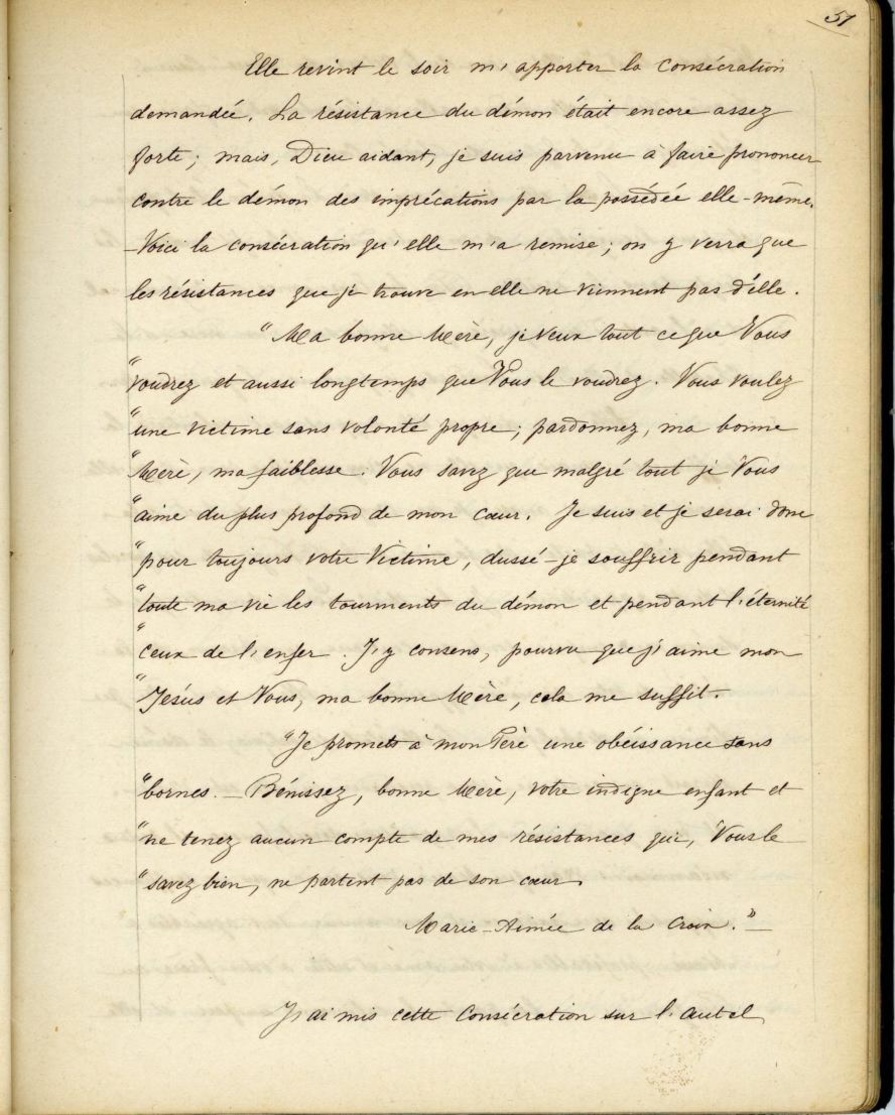 51
Elle revint le soir m'apporter la Consécration
demandée. La résistance du démon était encore assez
forte; mais, Dieu aidant, je suis parvenu à faire prononcer
contre le démon des imprécations par la possédée elle-même.
Voici la consécration qu'elle m'a remise; on y verra que
les résistances que je trouve en elle ne viennent pas d'elle.
"Ma bonne Mère, je veux tout ce que Vous
"voudrez et aussi longtemps que Vous le voudrez. Vous voulez
"une victime sans volonté propre; pardonnez, ma bonne
"Mère, ma faiblesse. Vous savez que malgré tout je Vous
"aime du plus profond de mon cœur. Je suis et je serai donc
"pour toujours votre Victime, dussé-je souffrir pendant
"toute ma vie les tourments du démon et pendant l'éternité
"ceux de l'enfer. J'y consens, pourvu que j'aime mon
"Jésus et Vous, ma bonne Mère, cela me suffit.
"Je promets à mon Père une obéissance sans
"bornes. _ Bénissez, bonne Mère, votre indigne enfant et
"ne tenez aucun compte de mes résistances qui, Vous le
"savez bien, ne partent pas de son cœur.
Marie-Aimée de la Croix."_
J'ai mis cette Consécration sur l'autel